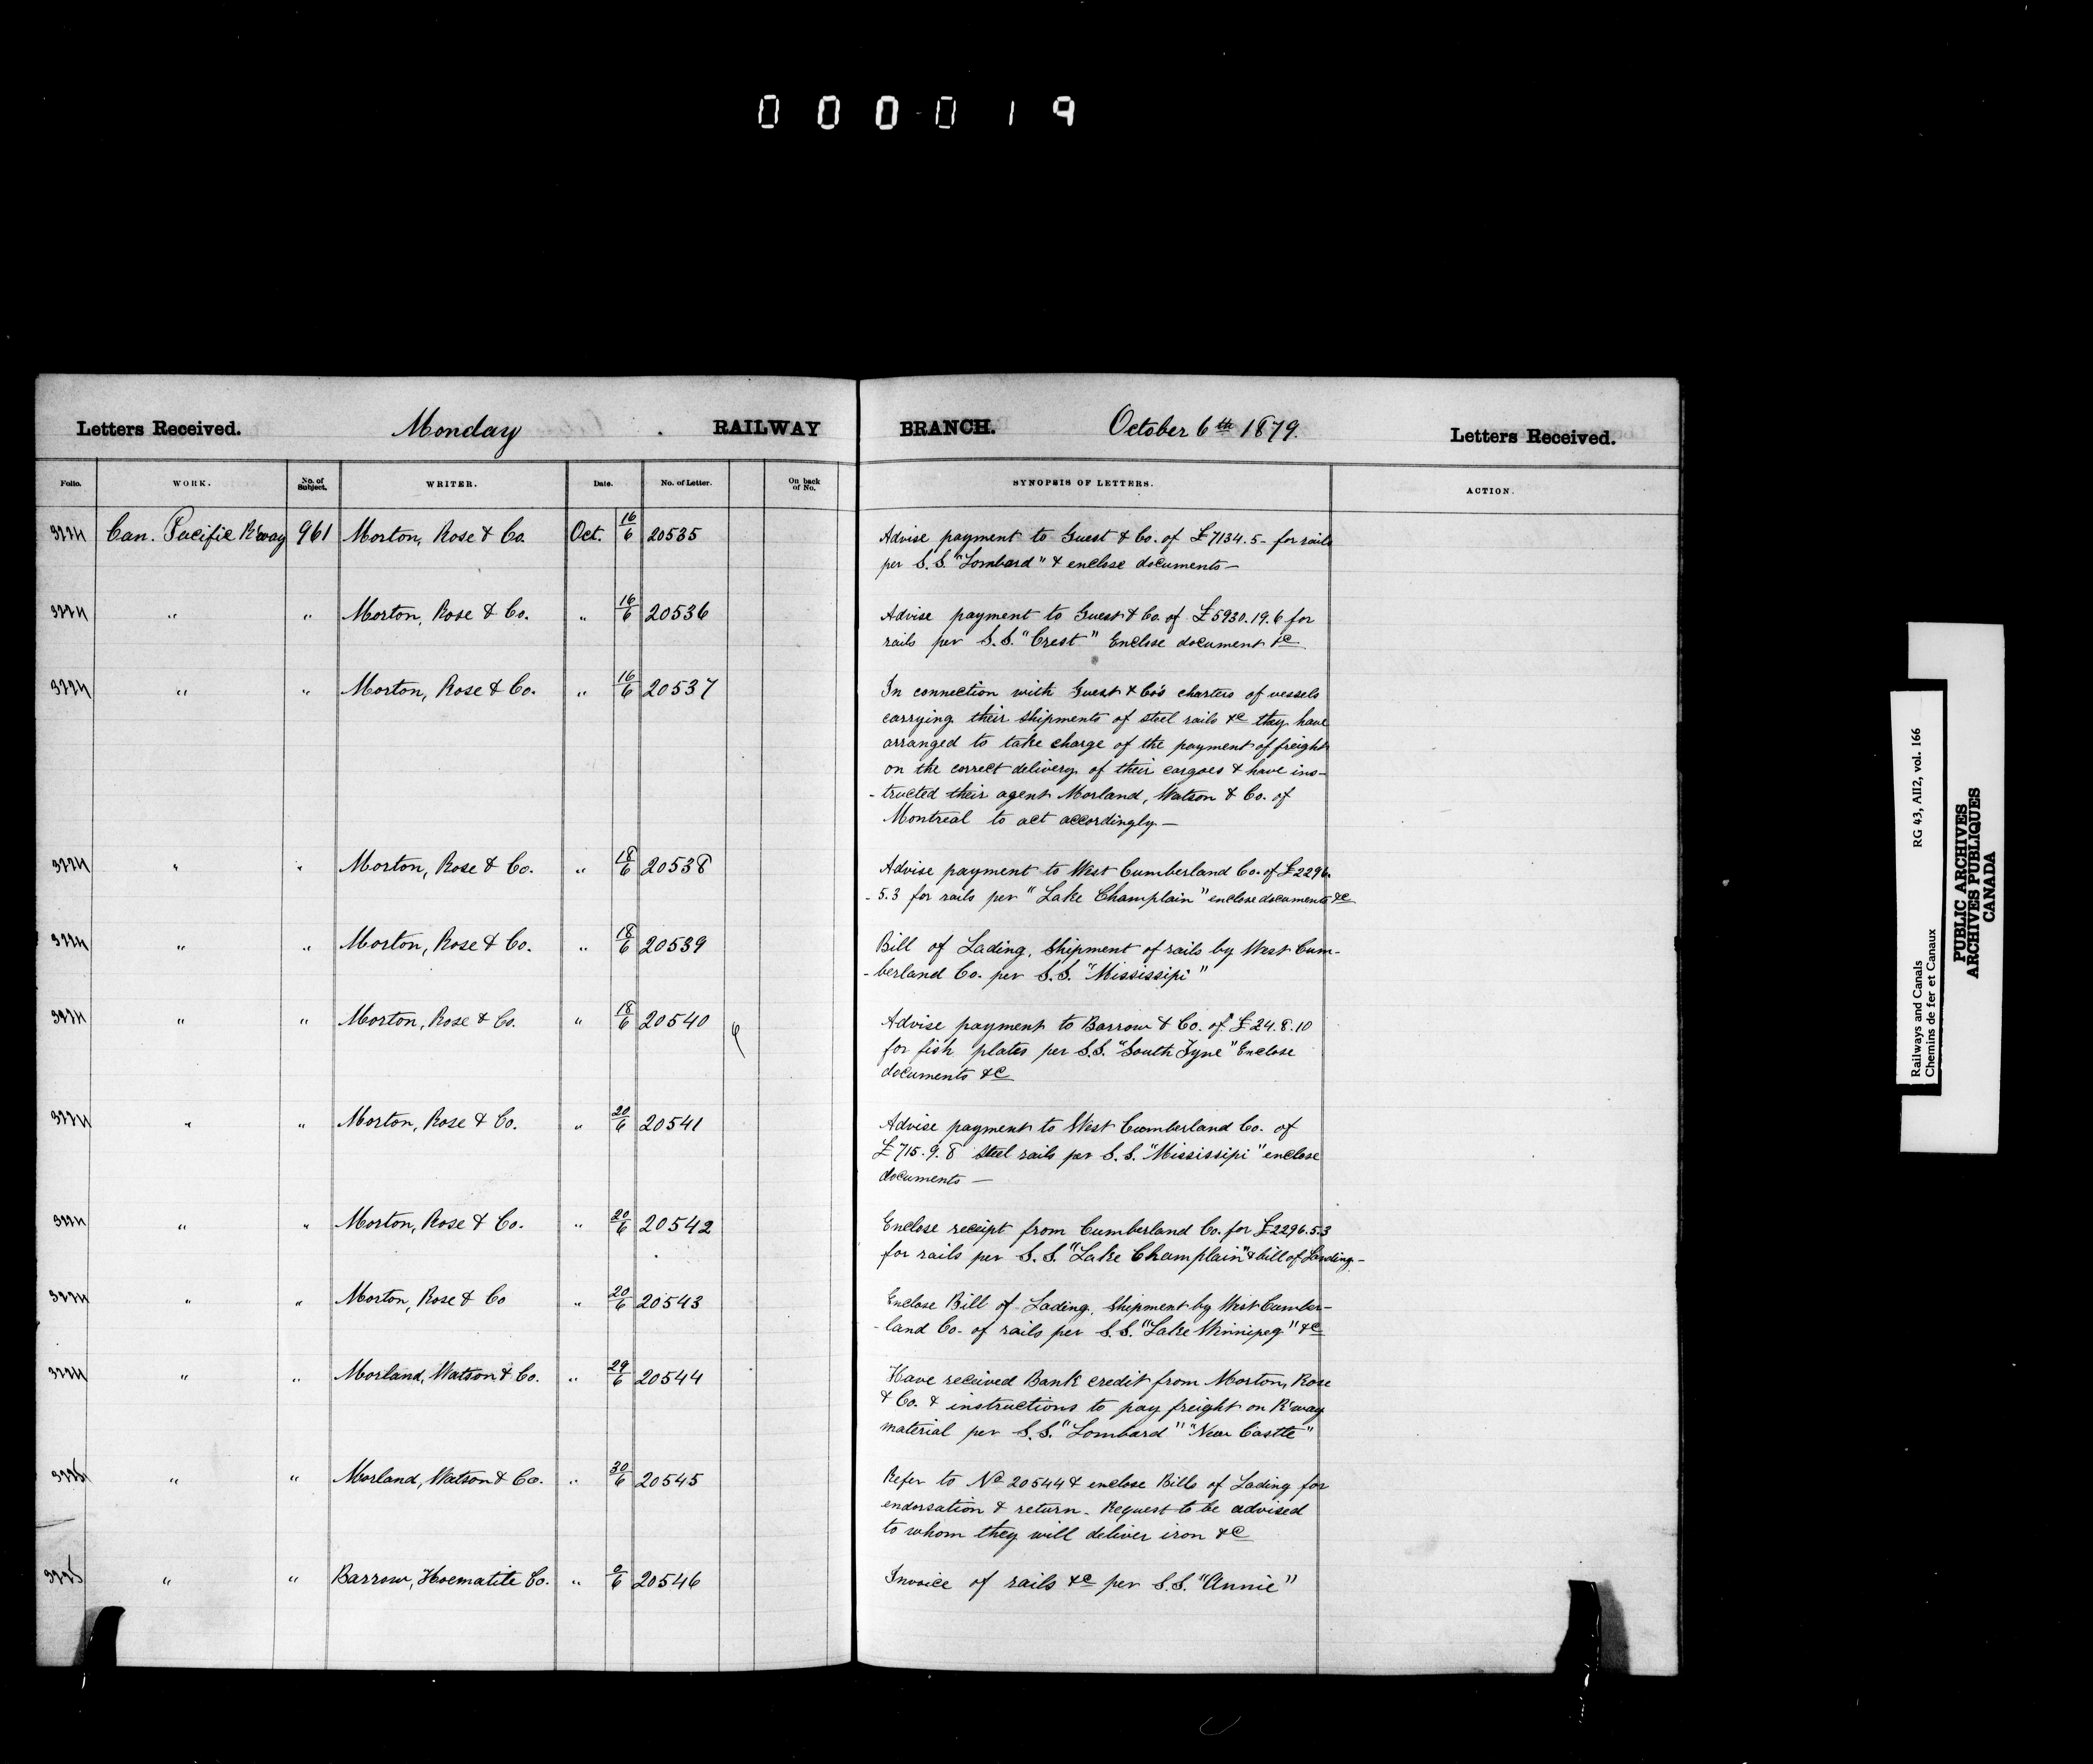 000019
Letters Received. Monday RAILWAY BRANCH. October 6th 1879. Letters Received.
Folio. WORK. No. of Subject. WRITER. Date. No. of Letter. On back of No. SYNOPSIS OF LETTERS. ACTION.
Can. Pacific R'way 961 Morton, Rose & Co. Oct. 16/6 20535 Advise payment to Guest & Co. of £7134.5- for rails
per S.S. "Lombard" & enclose documents —
" " Morton, Rose & Co. " 16/6 20536 Advise payment to Guest & Co. of £5930.19.6 for
rails per S.S. "Crest" Enclose document &c
" " Morton, Rose & Co. " 16/6 20537 In connection with Guest & Co's charters of vessels
carrying their shipments of steel rails &c they have
arranged to take charge of the payment of freight
on the correct delivery of their cargoes & have ins-
-tructed their agent Morland, Watson & Co. of
Montreal to act accordingly —
" " Morton, Rose & Co. " 18/6 20538 Advise payment to West Cumberland Co. of £2296.
-5.3 for rails per "Lake Champlain" enclose documents &c
" " Morton, Rose & Co. " 18/6 20539 Bill of Lading, Shipment of rails by West Cum-
-berland Co. per S.S. "Mississipi"
" " Morton, Rose & Co. " 18/6 20540 Advise payment to Barrow & Co. of £24.8.10
for fish plates per S.S. "South Tyne" Enclose
documents &c
" " Morton, Rose & Co. " 20/6 20541 Advise payment to West Cumberland Co. of
£715.9.8 Steel rails per S.S. "Mississipi" enclose
documents —
" " Morton, Rose & Co. " 20/6 20542 Enclose receipt from Cumberland Co. for £2296.5.3
for rails per S.S. "Lake Champlain" & bill of Landing-
" " Morton, Rose & Co " 20/6 20543 Enclose Bill of Lading, Shipment by West Cumber-
-land Co. of rails per S.S. "Lake Winnipeg" &c
" " Morland, Watson & Co. " 29/6 20544 Have received Bank credit from Morton, Rose
& Co. & instructions to pay freight on R'way
material per S.S. "Lombard" "New Castle"
" " Morland, Watson & Co. " 30/6 20545 Refer to No 20544 & enclose Bills of Lading for
endorsation & return. Request to be advised
to whom they will deliver iron &c
" " Barrow, Hoematite Co. " 20546 Invoice of rails &c per S.S. "Annie"
Railways and Canals RG 43, AII2, vol. 166
Chemins de fer et Canaux
PUBLIC ARCHIVES
ARCHIVES PUBLIQUES
CANADA